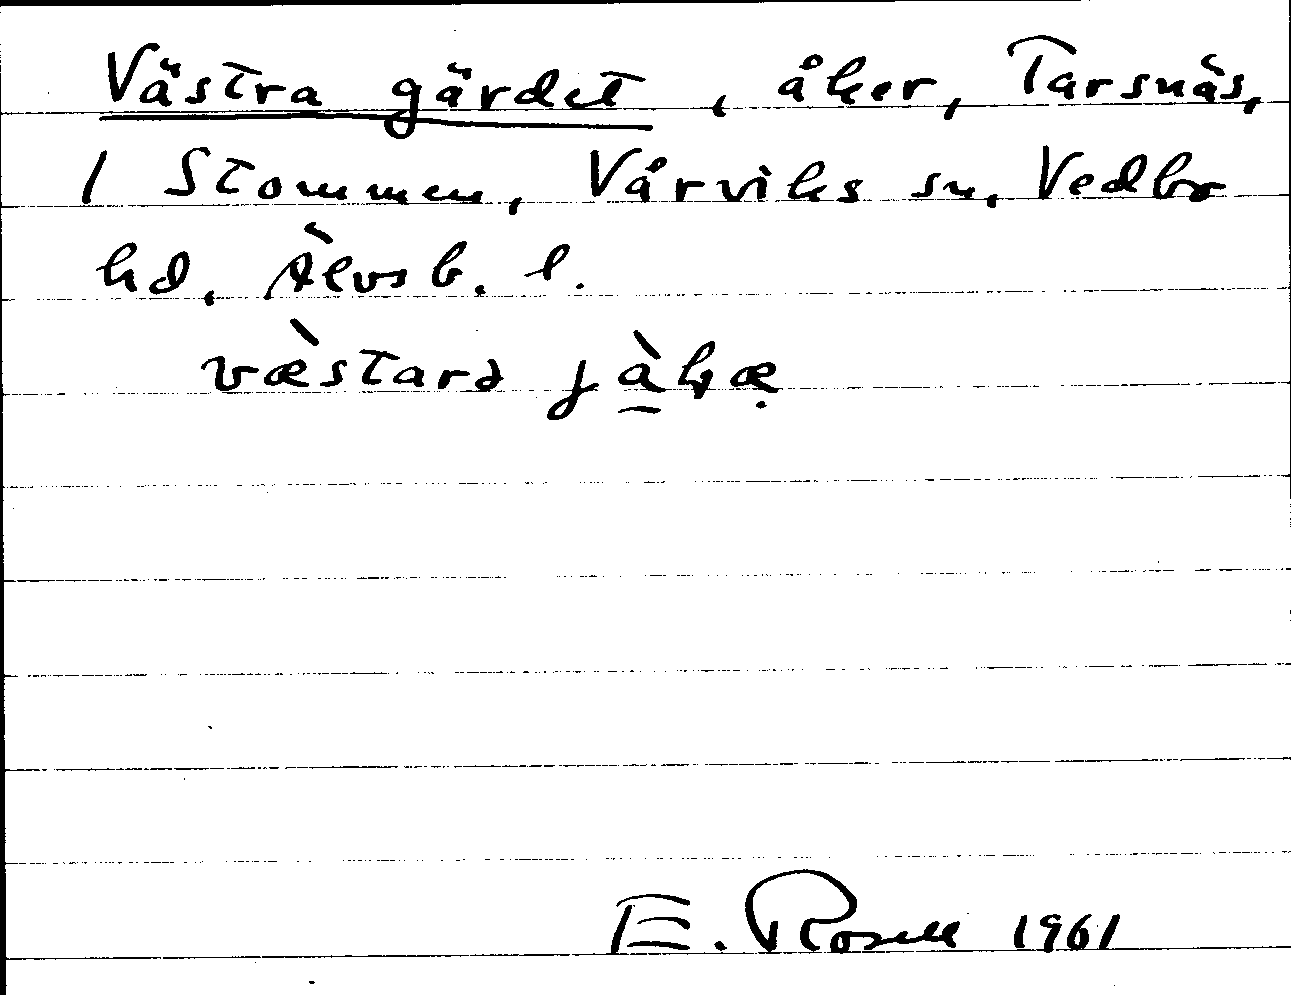 Västra gärdet, åker, Tarsnäs,
1 Stommen, Vårviks sn, Vedbo
hd, Älvsb. l.
væ̀starə
E. Rosell 1961